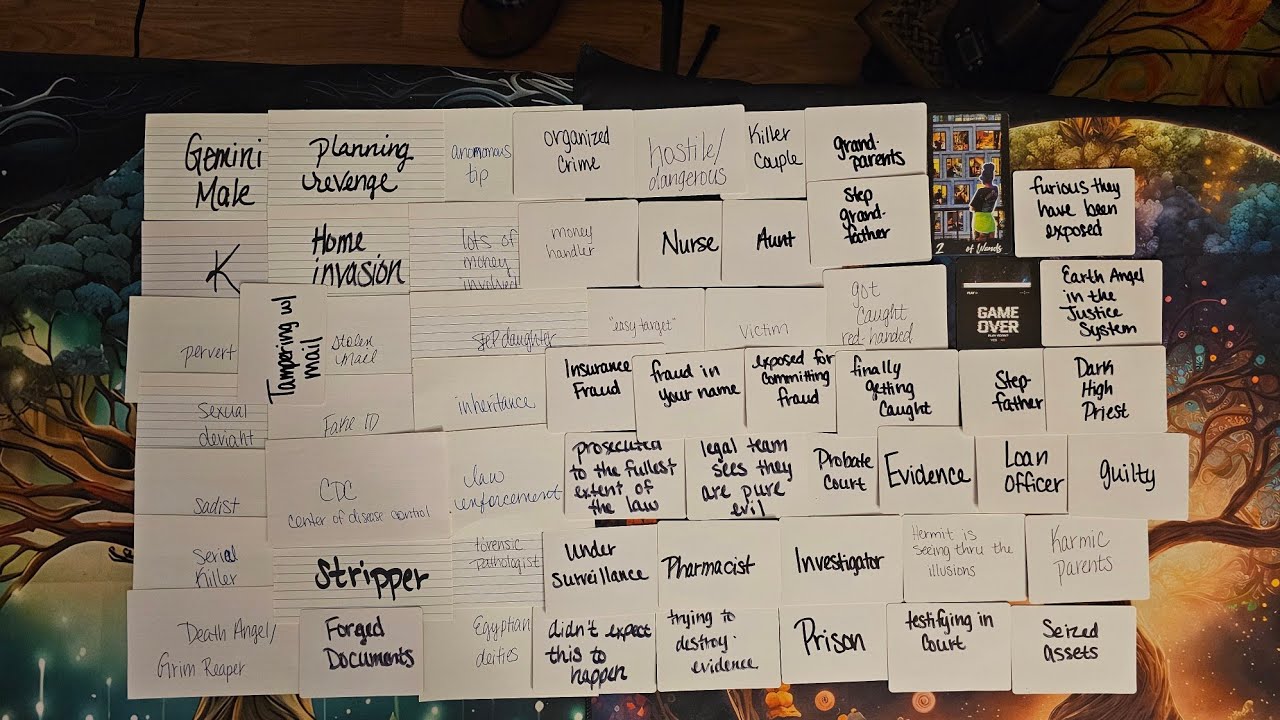 Gemini
Male
planning
revenge
anonomous
tip
organized
Crime
hostile/
dangerous
Killer
Couple
grand-
parents
K
Home
invasion
lots of
money
involved
money
handler
Nurse
Aunt
Step
grand-
father
2 of Wands
furious they
have been
exposed
pervert
Tampering w/
mail
stolen
mail
step daughter
"easy target"
victim
got
caught
red-handed
GAME
OVER
Earth Angel
in the
Justice
System
Sexual
deviant
Fake ID
inheritance
Insurance
Fraud
fraud in
your name
exposed for
committing
fraud
finally
getting
Caught
Step-
father
Dark
High
Priest
Sadist
CDC
center of disease control
law
enforcement
prosecuted
to the fullest
extent of
the law
legal team
sees they
are pure
evil
Probate
Court
Evidence
Loan
Officer
guilty
Serial
Killer
Stripper
forensic
pathologist
under
Surveillance
Pharmacist
Investigator
Hermit is
seeing thru the
illusions
Karmic
parents
Death Angel/
Grim Reaper
Forged
Documents
Egyptian
deities
didn't expect
this to
happen
trying to
destroy
evidence
Prison
testifying in
Court
Seized
assets